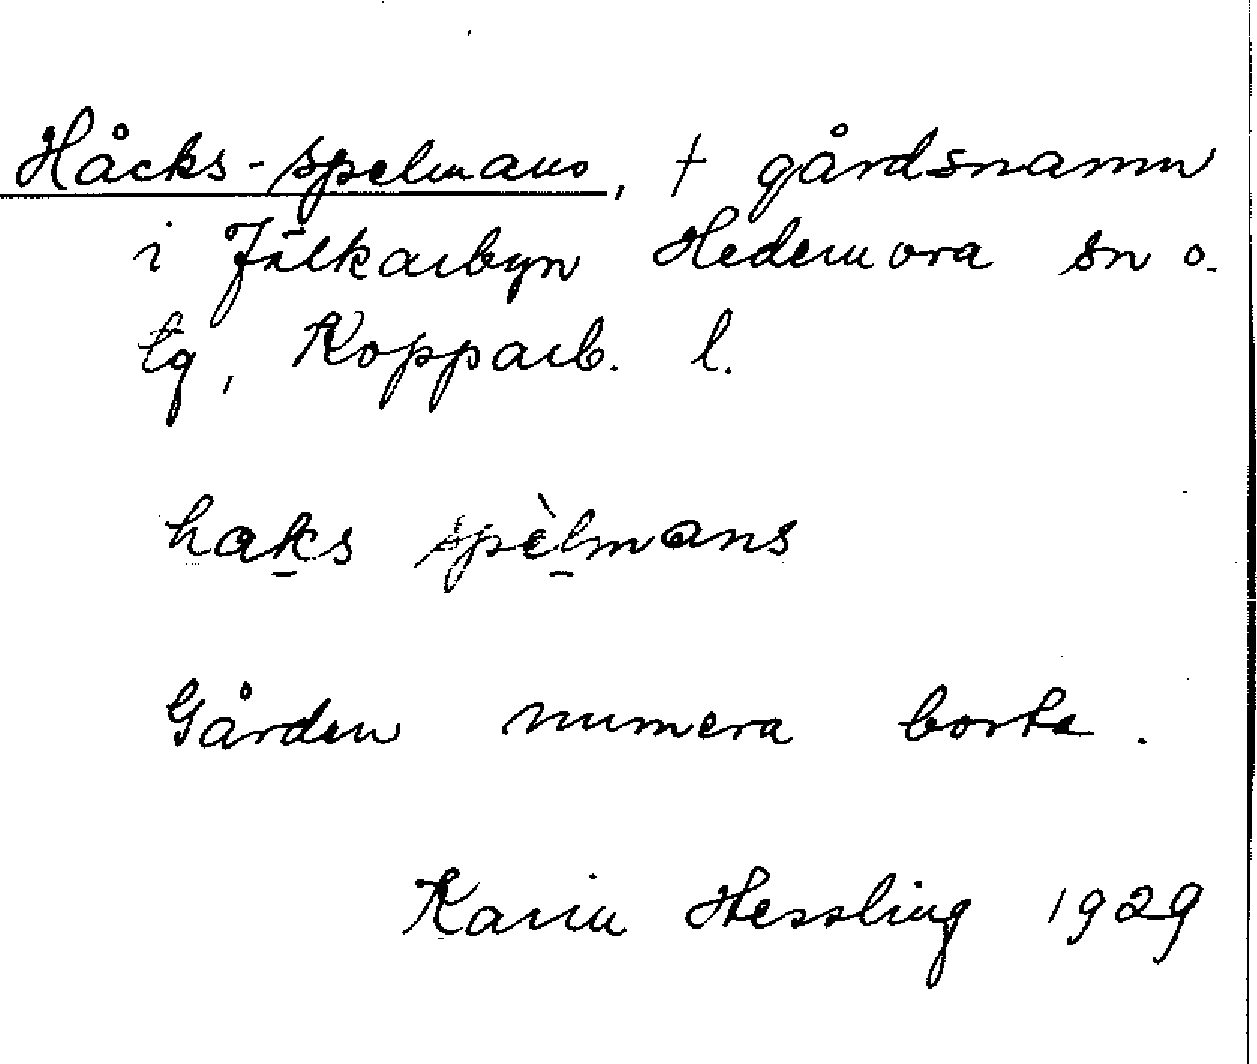 Håcks-spelmans, † gårdsnamn
i Jälkarbyn Hedemora sn o.
tg, Kopparb. l.
haks spèlmans
Gården numera borta.
Karin Hessling 1929